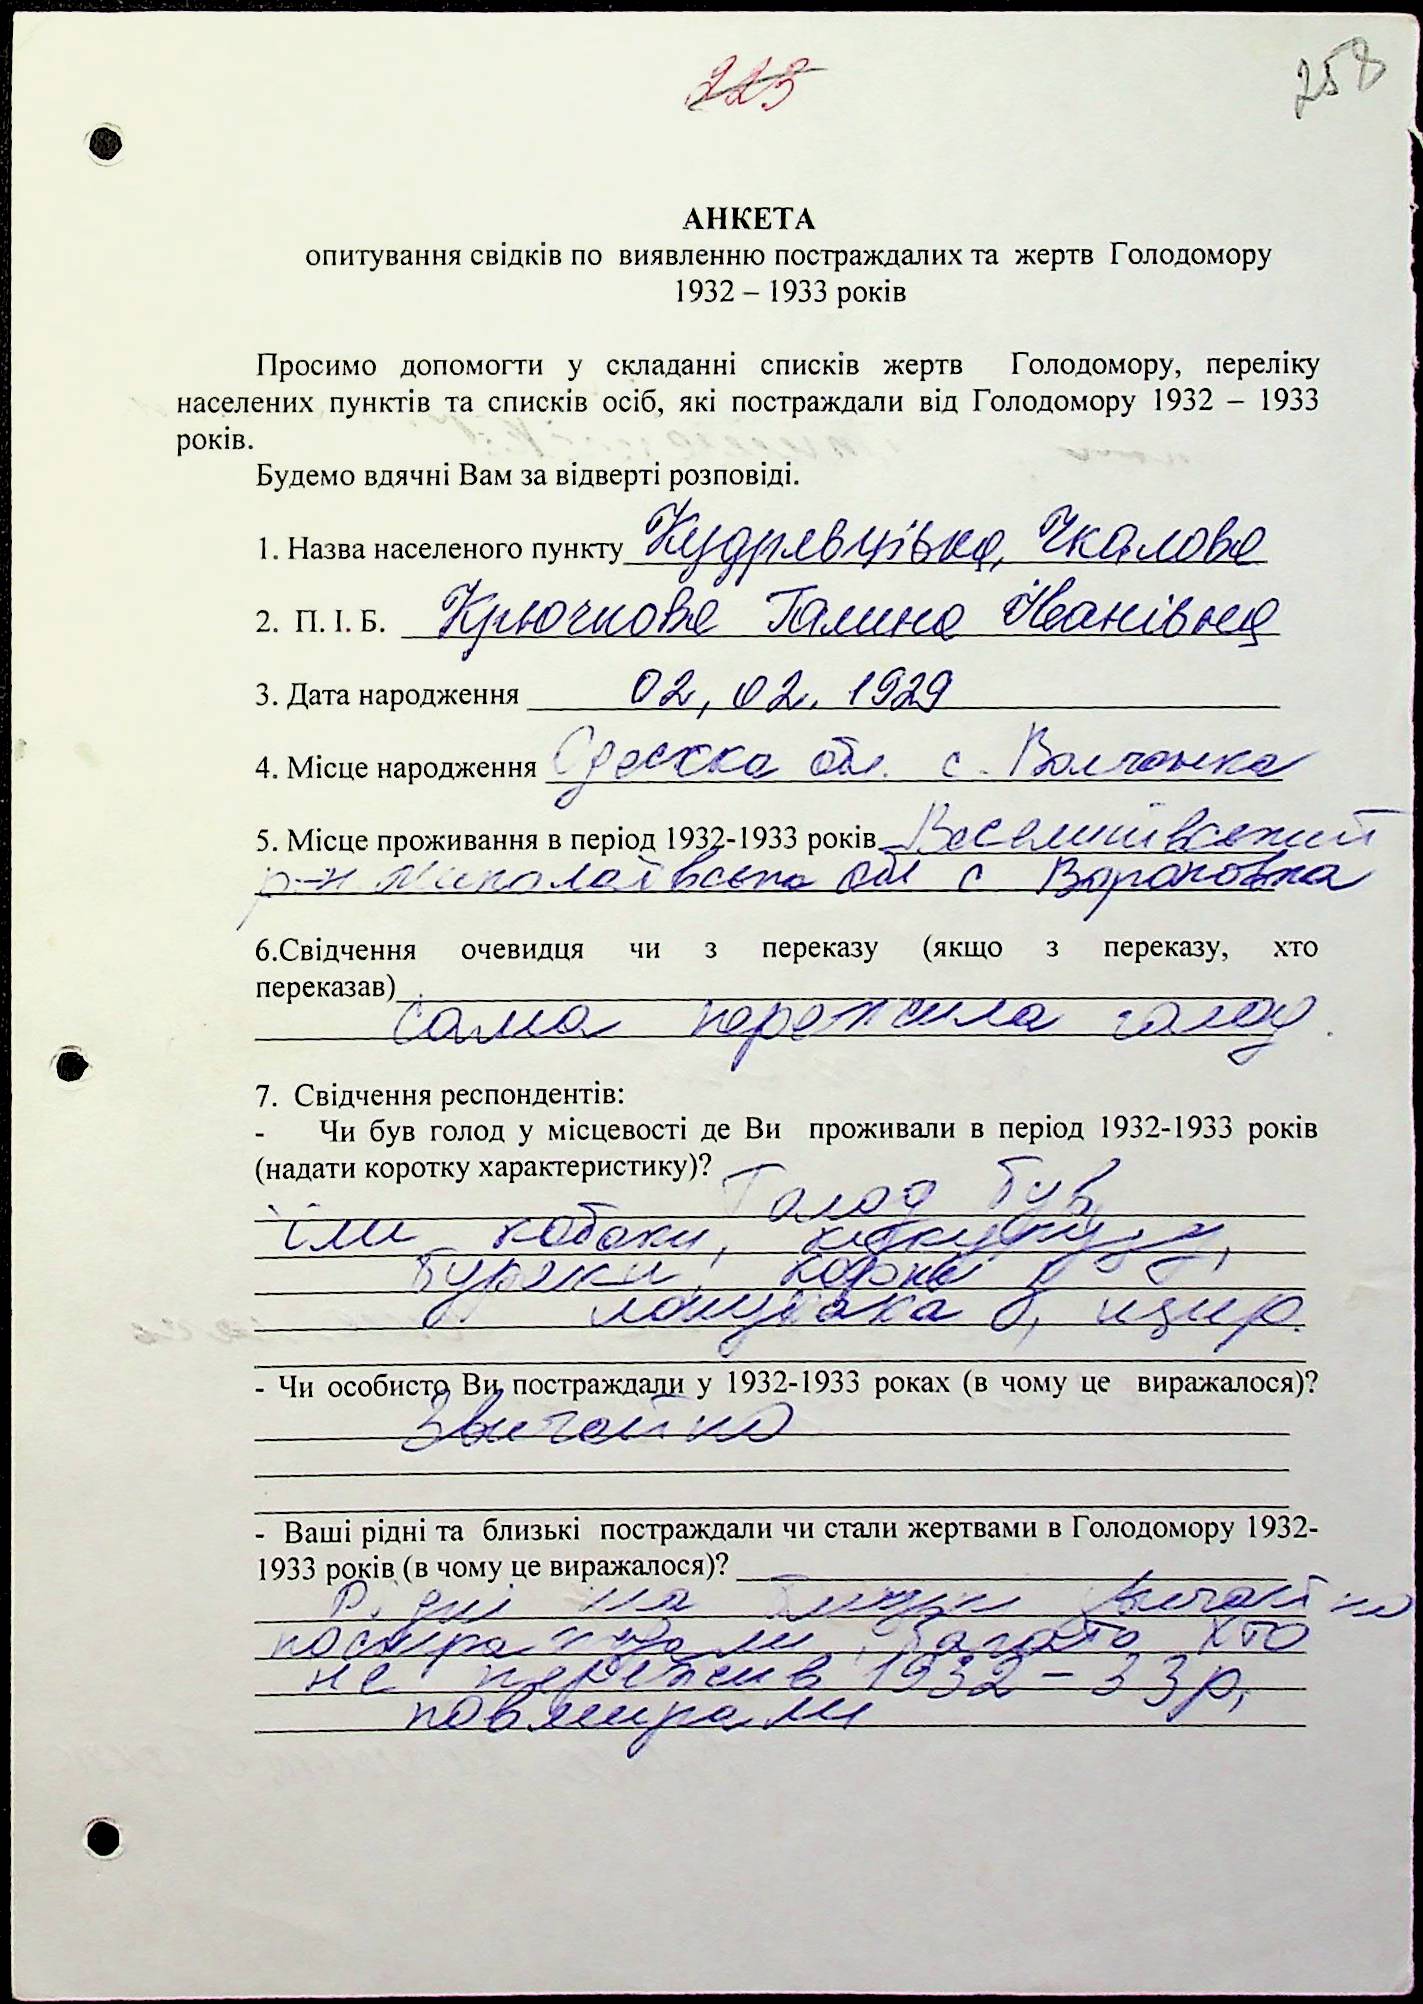 223
258
АНКЕТА
опитування свідків по виявленню постраждалих та жертв Голодомору
1932 – 1933 років
Просимо допомогти у складанні списків жертв Голодомору, переліку
населених пунктів та списків осіб, які постраждали від Голодомору 1932 – 1933
років.
Будемо вдячні Вам за відверті розповіді.
1. Назва населеного пункту Кудрявцівка, Чкалова
2. П. І. Б. Крючкова Галина Іванівна
3. Дата народження 02, 02. 1929
4. Місце народження Одеська обл. с. Волчанка
5. Місце проживання в період 1932-1933 років Веселинівський
р-н Миколаївська обл с Вороновка
6.Свідчення очевидця чи з переказу (якщо з переказу, хто
переказав)
сама пережила голод.
7. Свідчення респондентів:
- Чи був голод у місцевості де Ви проживали в період 1932-1933 років
(надати коротку характеристику)?
Голод був
їли кабаки, кукурузу,
буряки,
лошадка
- Чи особисто Ви постраждали у 1932-1933 роках (в чому це виражалося)?
Звичайно
- Ваші рідні та близькі постраждали чи стали жертвами в Голодомору 1932-
1933 років (в чому це виражалося)?
Рідні та звичайно
постраждали, багато хто
не пережив 1932-33 р,
повмирали